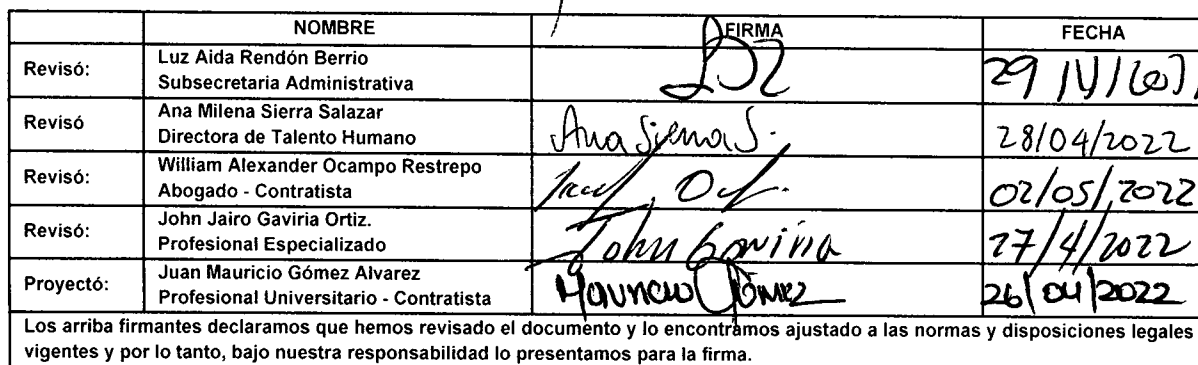 NOMBRE FIRMA FECHA
Revisó: Luz Aida Rendón Berrio
Subsecretaria Administrativa
29 IV
Revisó Ana Milena Sierra Salazar
Directora de Talento Humano
Ana Sierra S. 28/04/2022
Revisó: William Alexander Ocampo Restrepo
Abogado - Contratista
02/05/2022
Revisó: John Jairo Gaviria Ortiz.
Profesional Especializado
John Gaviria 27/4/2022
Proyectó: Juan Mauricio Gómez Alvarez
Profesional Universitario - Contratista
Mauricio Gómez 26/04/2022
Los arriba firmantes declaramos que hemos revisado el documento y lo encontramos ajustado a las normas y disposiciones legales
vigentes y por lo tanto, bajo nuestra responsabilidad lo presentamos para la firma.